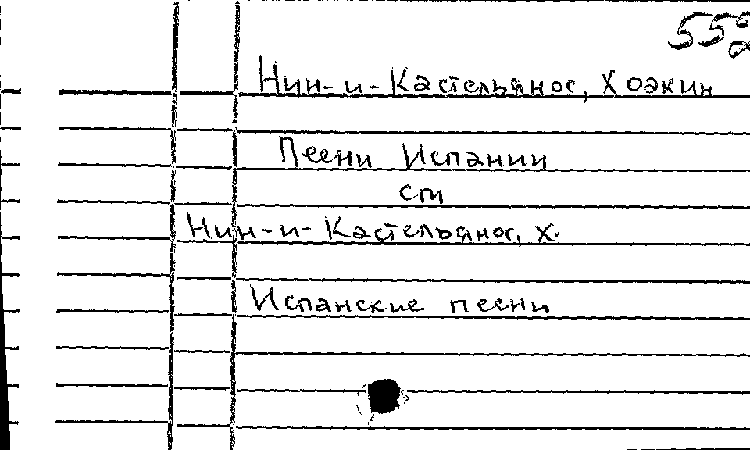 55
Нин-и-Кастельянос, Хоакин
Песни Испании
см
Нин-и-Кастельянос, Х.
Испанские песни